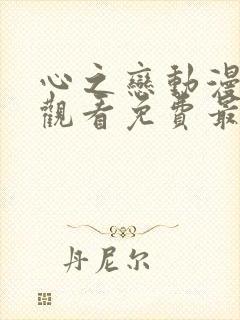 心之戀動漫
觀看免費最
丹尼尔